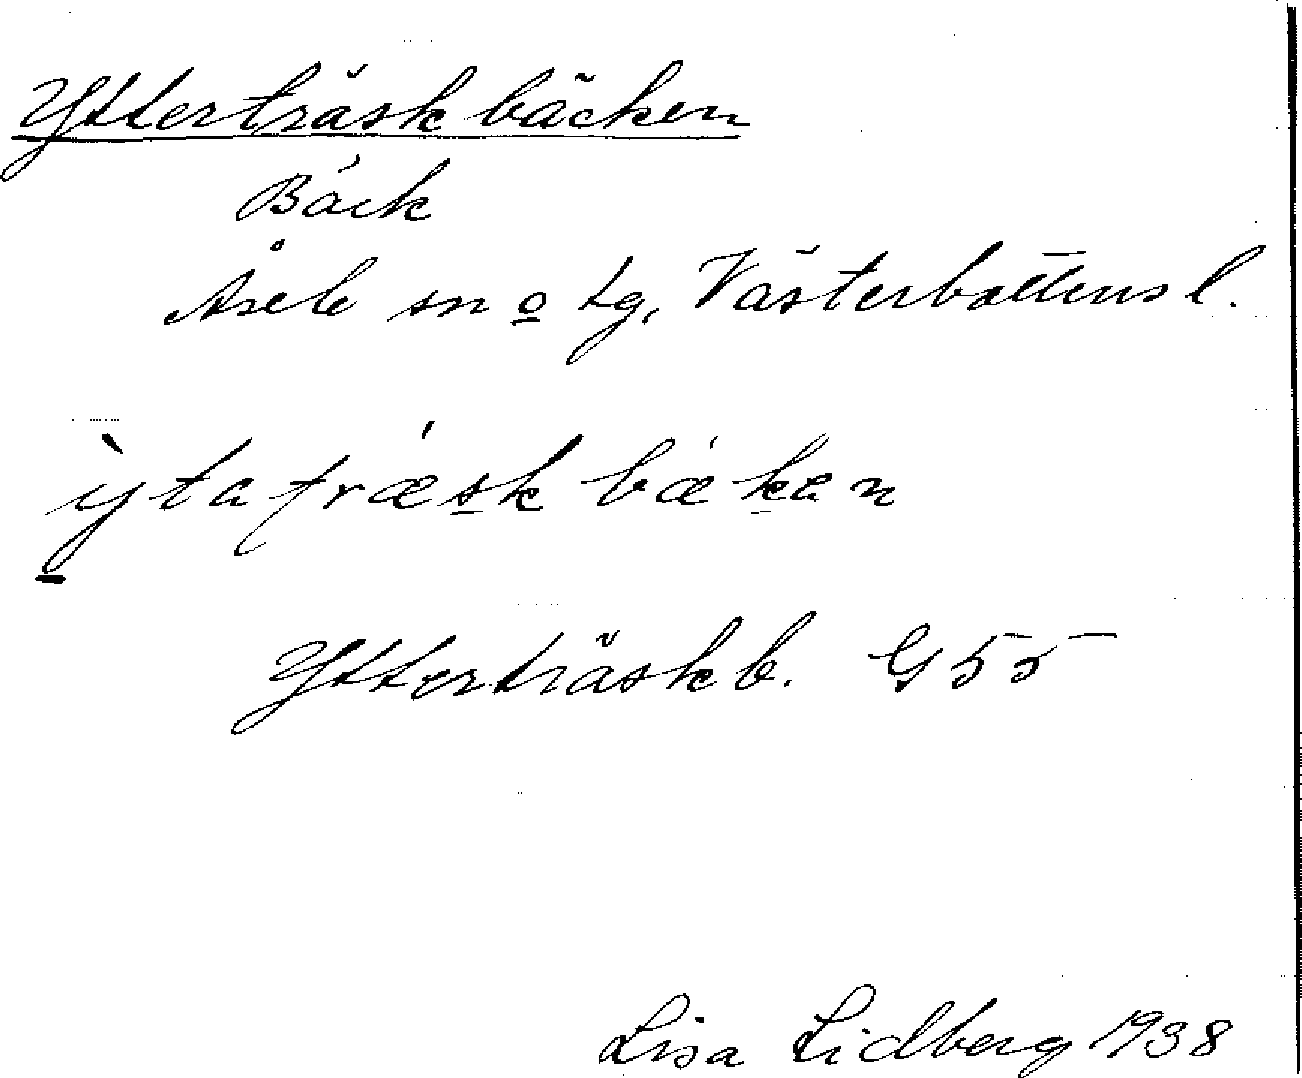 Ytterträskbäcken
Bäck
Åsele sn o lg, Västerbottens l.
ỳtatrǽsk bækan
Ytterträskb. G 55
Lisa Lidberg 1938